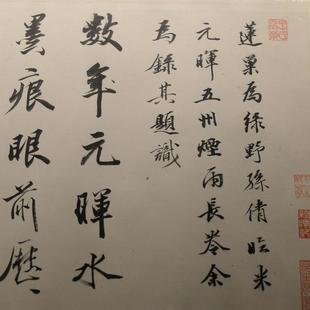 蓮巢為綠野孫倩臨米
元暉五州煙雨長卷余
為錄其題識
數年元暉水
墨痕眼前歷〻